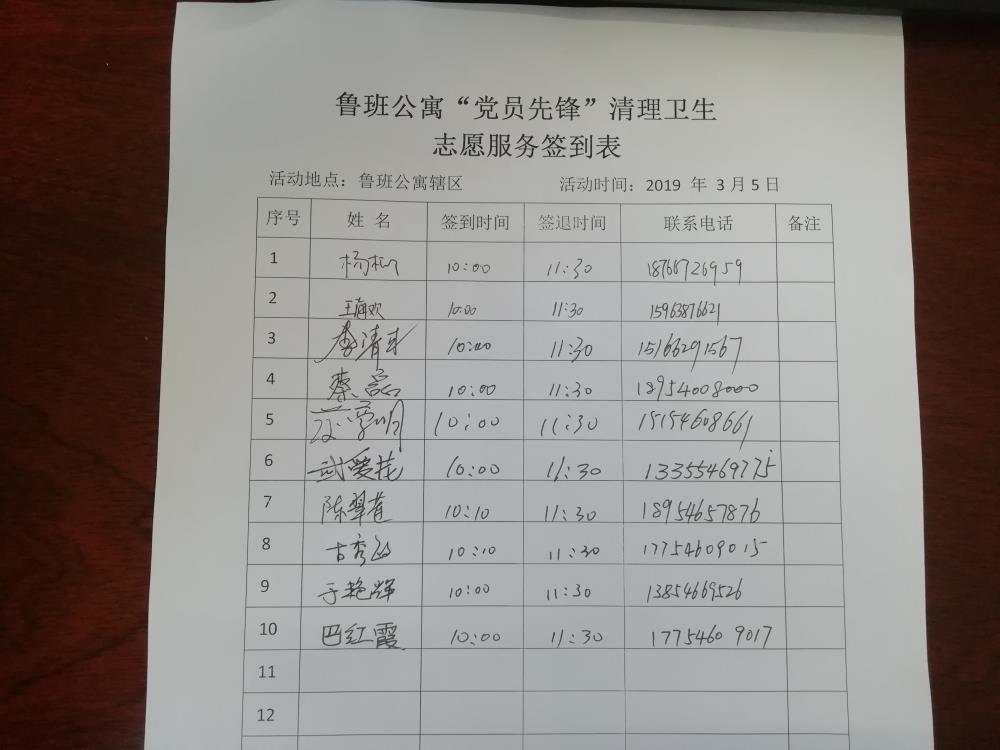 鲁班公寓“党员先锋”清理卫生
志愿服务签到表
活动地点：鲁班公寓辖区 活动时间：2019 年 3月5日
序号 姓 名 签到时间 签退时间 联系电话 备注
1 杨 10:00 11:30 18766726959
2 王 欢 10:00 11:30 15963876621
3 李清 10:00 11:30 15166291567
4 蔡磊 10:00 11:30 18954008000
5 10:00 11:30 15154608661
6 武爱花 10:00 11:30 13355469775
7 陈翠 10:10 11:30 18954657876
8 古秀 10:10 11:30 17754609015
9 于艳辉 10:00 11:30 13854669526
10 巴红霞 10:00 11:30 17754609017
11
12